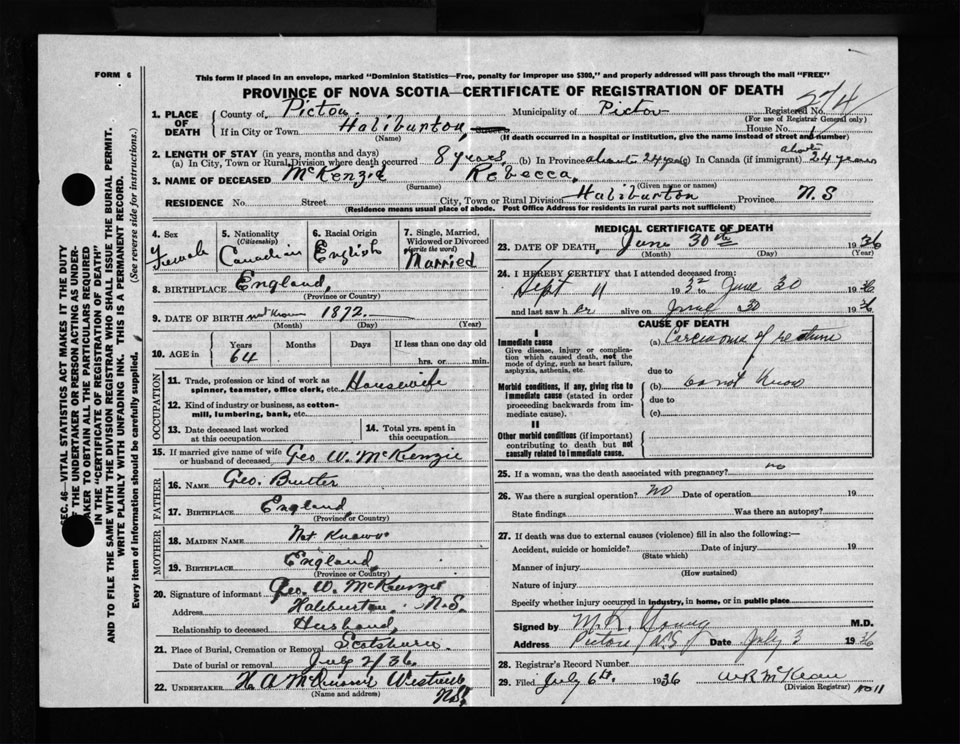 FORM 6
This form if placed in an envelope, marked "Dominion Statistics—Free, penalty for improper use $300," and properly addressed will pass through the mail "FREE"
PROVINCE OF NOVA SCOTIA—CERTIFICATE OF REGISTRATION OF DEATH
274
1. PLACE OF DEATH County of Pictou Municipality of Pictou Registered No.
(For use of Registrar General only)
If in City or Town Haliburton House No.
(Name) (If death occurred in a hospital or institution, give the name instead of street and number)
2. LENGTH OF STAY (in years, months and days)
(a) In City, Town or Rural Division where death occurred 8 years (b) In Province about 24 yrs (c) In Canada (if immigrant) about 24 years
3. NAME OF DECEASED McKenzie Rebecca
(Surname) (Given name or names)
RESIDENCE No. Street City, Town or Rural Division Haliburton Province N.S
(Residence means usual place of abode. Post Office Address for residents in rural parts not sufficient)
4. Sex Female
5. Nationality (Citizenship) Canadian
6. Racial Origin English
7. Single, Married, Widowed or Divorced (write the word) Married
8. BIRTHPLACE England
(Province or Country)
9. DATE OF BIRTH not known 1872
(Month) (Day) (Year)
10. AGE in Years 64 Months Days If less than one day old hrs. or min.
OCCUPATION
11. Trade, profession or kind of work as spinner, teamster, office clerk, etc. Housewife
12. Kind of industry or business, as cotton-mill, lumbering, bank, etc.
13. Date deceased last worked at this occupation
14. Total yrs. spent in this occupation
15. If married give name of wife or husband of deceased Geo W. McKenzie
FATHER
16. NAME Geo. Butler
17. BIRTHPLACE England
(Province or Country)
MOTHER
18. MAIDEN NAME Not Known
19. BIRTHPLACE England
(Province or Country)
20. Signature of informant Geo. W. McKenzie
Address Haliburton N.S.
Relationship to deceased Husband
21. Place of Burial, Cremation or Removal
Date of burial or removal July 2/36
22. UNDERTAKER H A Westville N.S.
(Name and address)
MEDICAL CERTIFICATE OF DEATH
23. DATE OF DEATH June 30th 1936
(Month) (Day) (Year)
24. I HEREBY CERTIFY that I attended deceased from:
Sept 11 1932 to June 30 1936
and last saw her alive on June 30 1936
CAUSE OF DEATH
I
Immediate cause
Give disease, injury or complication which caused death, not the mode of dying, such as heart failure, asphyxia, asthenia, etc.
(a) Carcinoma of rectum
due to
Morbid conditions, if any, giving rise to immediate cause (stated in order proceeding backwards from immediate cause).
(b) Do not know
due to
(c)
II
Other morbid conditions (if important) contributing to death but not causally related to immediate cause.
25. If a woman, was the death associated with pregnancy? no
26. Was there a surgical operation? No Date of operation 19
State findings Was there an autopsy?
27. If death was due to external causes (violence) fill in also the following:—
Accident, suicide or homicide? Date of injury 19
(State which)
Manner of injury
(How sustained)
Nature of injury
Specify whether injury occurred in industry, in home, or in public place
Signed by M. R. Young M.D.
Address Pictou N.S Date July 3 1936
28. Registrar's Record Number
29. Filed July 6th, 1936 W R McKean No 11
(Division Registrar)
SEC. 46—VITAL STATISTICS ACT MAKES IT THE DUTY
OF THE UNDERTAKER OR PERSON ACTING AS UNDER-
TAKER TO OBTAIN ALL THE PARTICULARS REQUIRED
IN THE "CERTIFICATE OF REGISTRATION OF DEATH"
AND TO FILE THE SAME WITH THE DIVISION REGISTRAR WHO SHALL ISSUE THE BURIAL PERMIT.
WRITE PLAINLY WITH UNFADING INK. THIS IS A PERMANENT RECORD.
Every item of information should be carefully supplied. (See reverse side for instructions.)